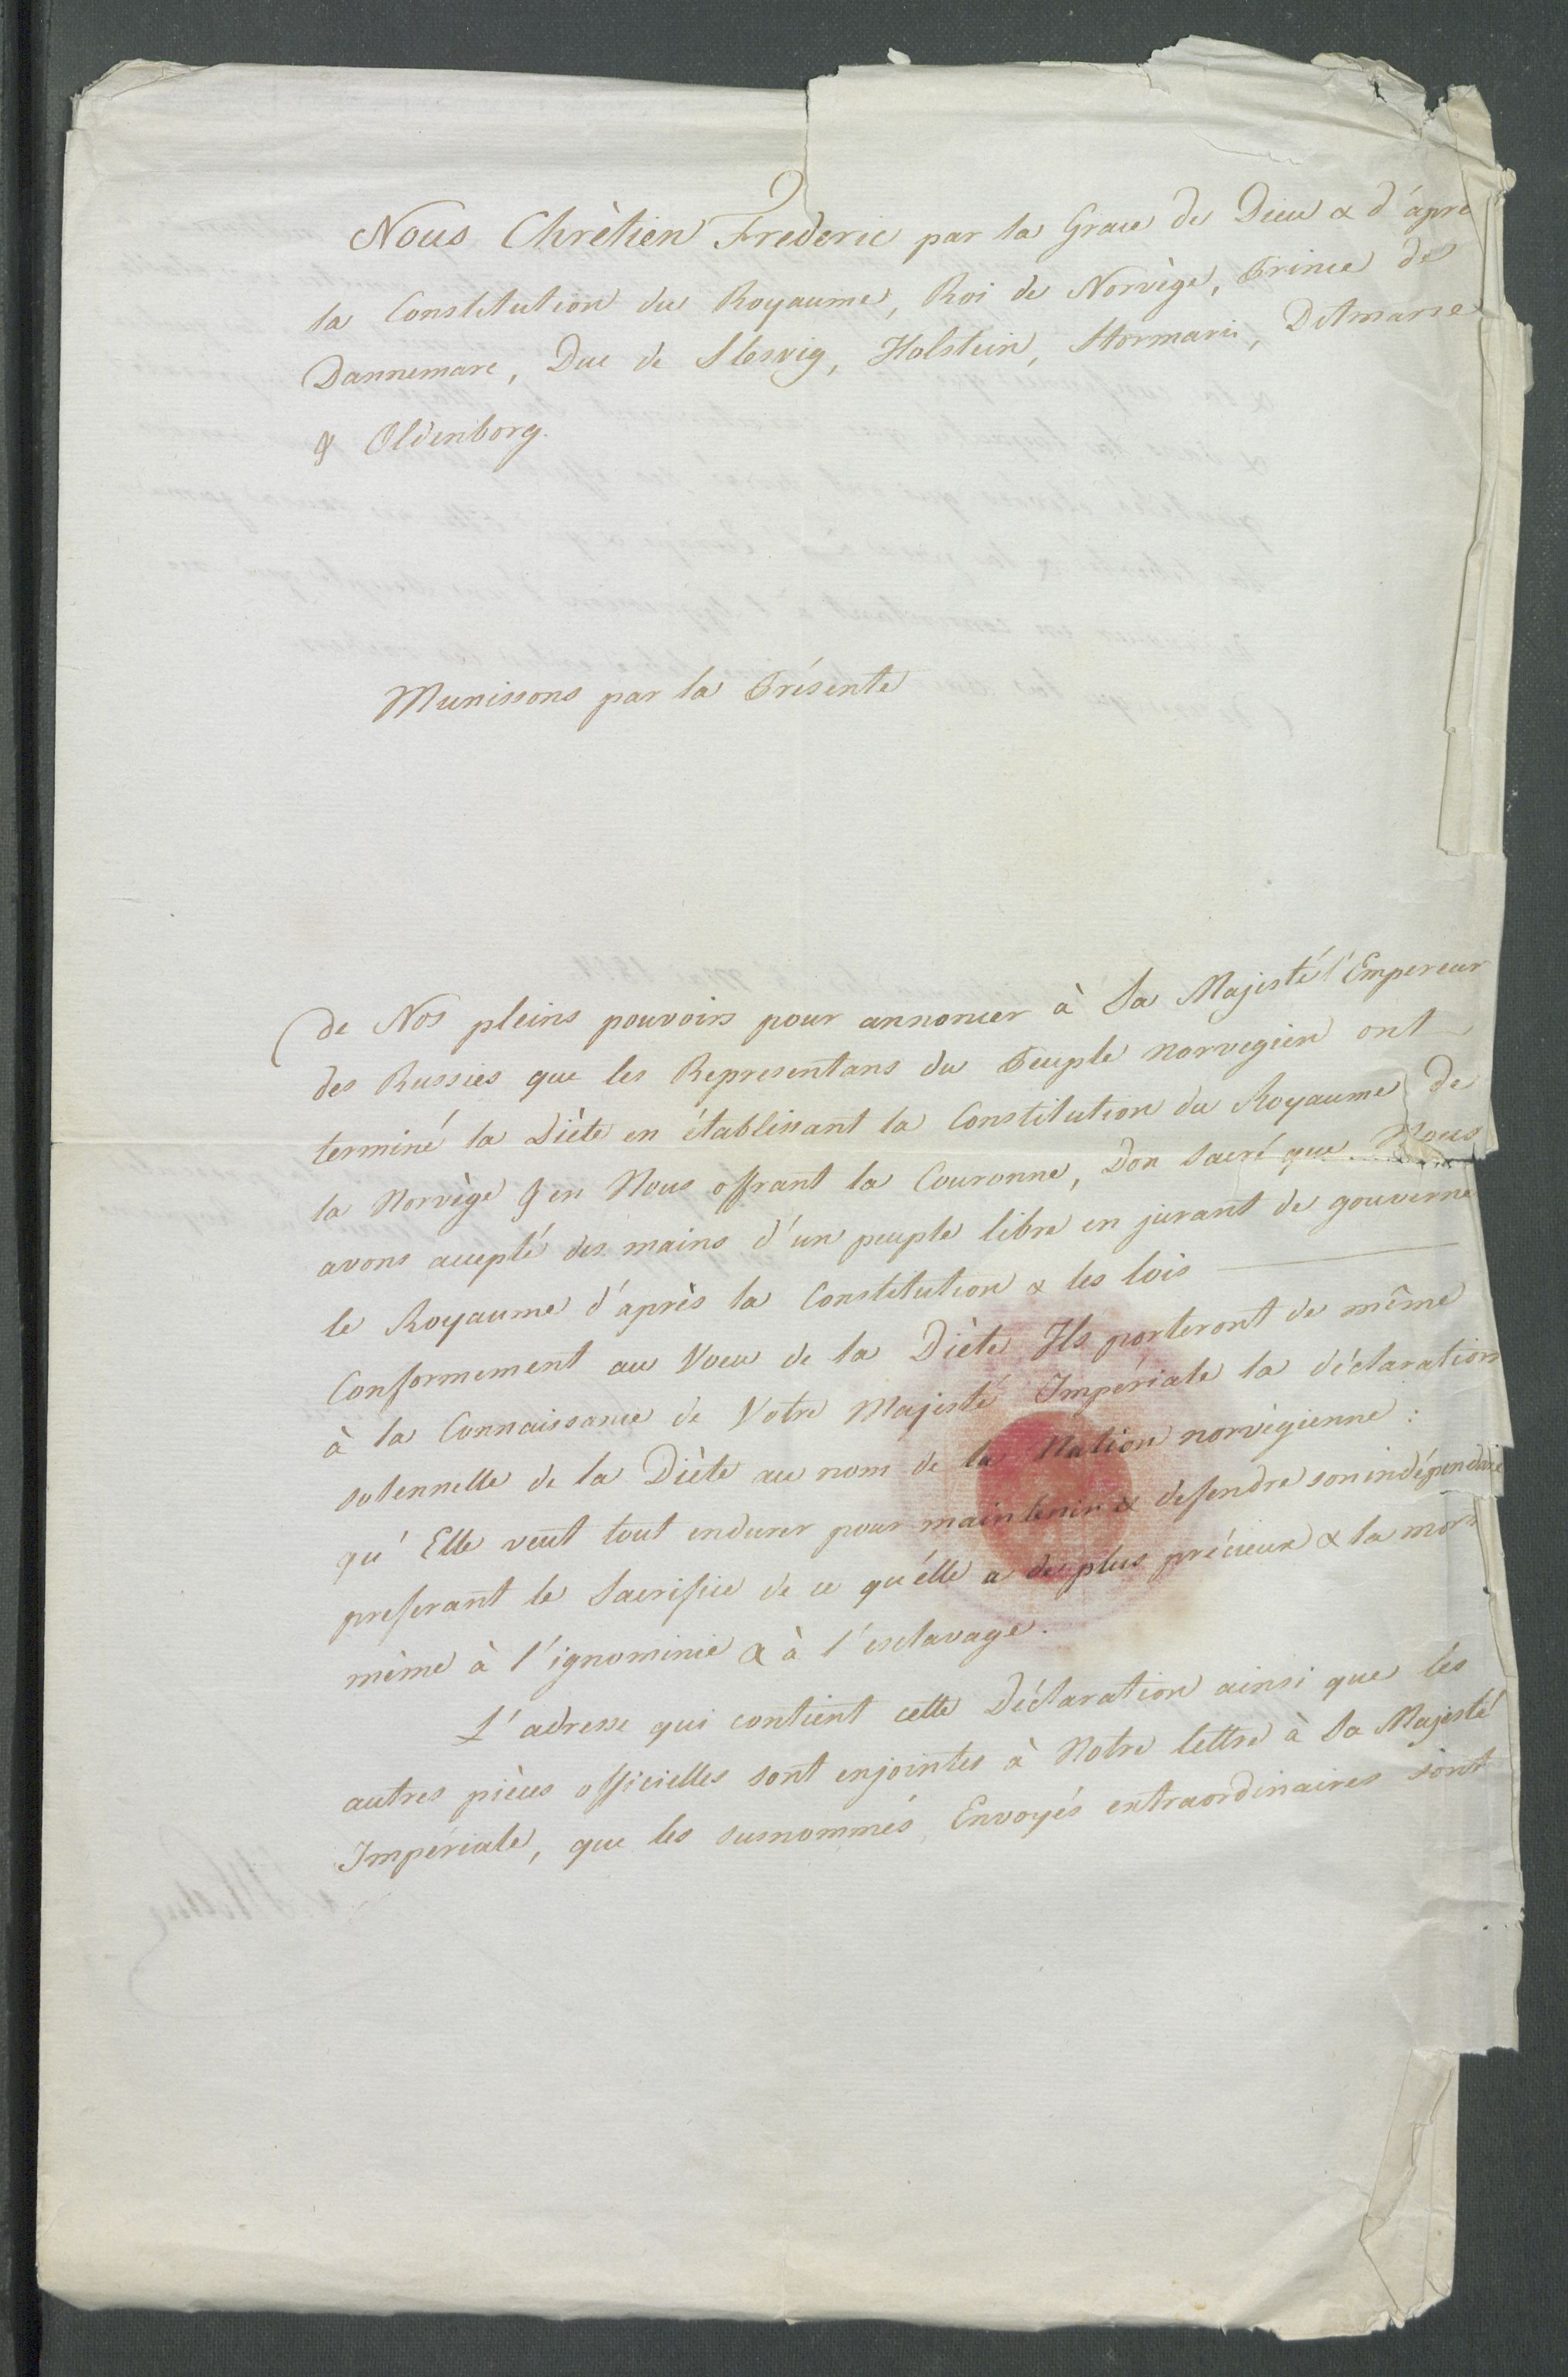 Nous Chrètien Frederic par la Grace de Dieu & d'àpre
la Constitution du Royaume, Roi de Norvège, Prince de
Dannemarc, Duc de Slesvig, Holstein, Stormarn, Ditmarse
& Oldenborg.
Munissons par la Présente
de Nos pleins pouvoirs pour annoncer à Sa Majesté l'Empereur
des Russies que les Representans du Peuple norvegien ont
terminé la Diète en établissant la Constitution du Royaume de
la Norvège & en Nous offrant la Couronne, Don Sacré que Nous
avons accepté des mains d'un peuple libre en jurant de gouverne
le Royaume d'après la Constitution & les lois
Conformement au Voeu de la Diète Ils porteront de même
à la Connaissance de Votre Majesté Impériale la déclaration
solennelle de la Diète au nom de la Nation norvégienne:
qu'Elle veut tout endurer pour maintenir & defendre son indépendance
preferant le Sacrifice de ce qu'élle a de plus précieux & la mort
même à l'ignominie & à l'esclavage.
L'adresse qui contient cette Déclaration ainsi que les
autres pièces officielles sont enjointes à Notre lettre à Sa Majesté
Impériale, que les susnommés Envoyés extraordinaires sont